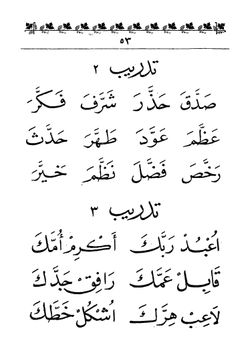 ٥٣
تدريب ٢
صَدَّقَ حَذَّرَ شَرَّفَ فَكَّرَ
عَظَّمَ عَوَّدَ طَهَّرَ حَدَّثَ
رَخَّصَ فَضَّلَ نَظَّمَ خَيَّرَ
تدريب ٣
اُعْبُدْ رَبَّكَ أَكْرِمْ أُمَّكَ
قَابِلْ عَمَّكَ رَافِقْ جَدَّكَ
لَاعِبْ هِرَّكَ اُشْكُلْ خَطَّكَ